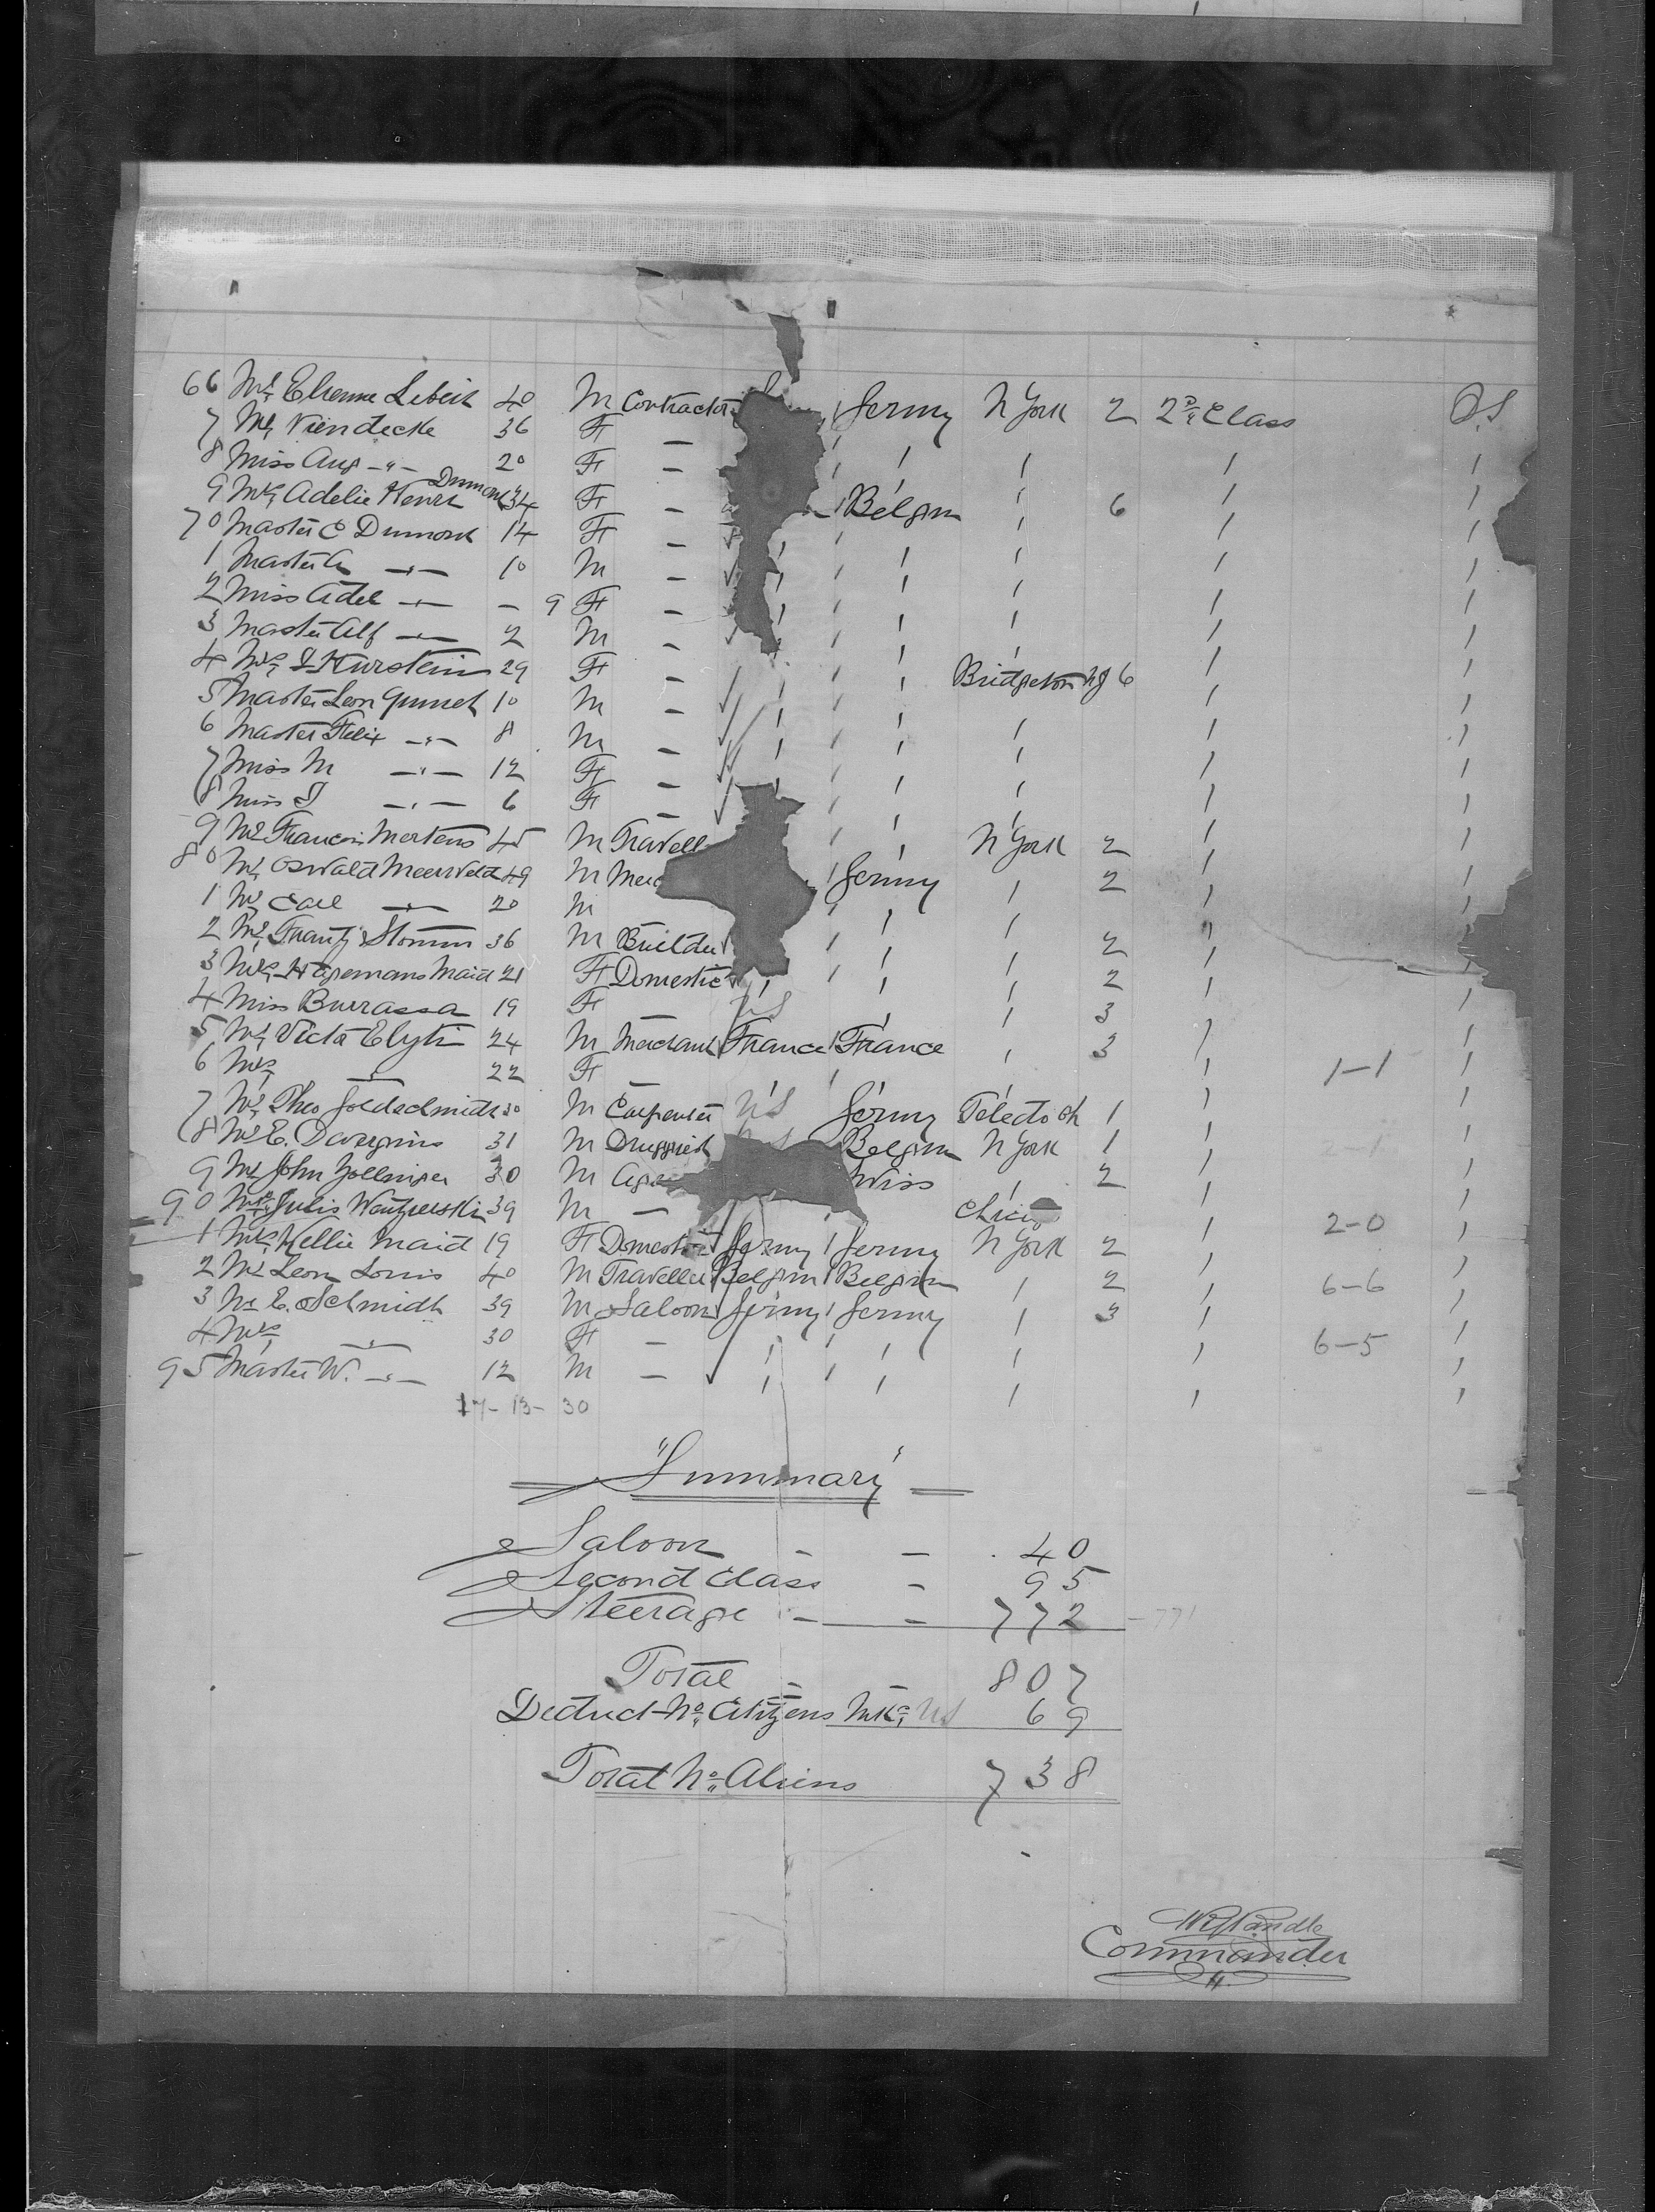 66 Mr 40 M Contractor Germy N York 2 2nd Class O.S
7 Mrs Niendecke 36 F —
8 Miss Aug —"— 20 F — ' ' ' '
9 Mrs Adelie Henri Dumont 34 F — Belgm ' 6 ' '
70 Master E Dumont 14 F — ' '
1 Master A —"— 10 M — ' ' ' ' ' '
2 Miss Adel —"— — 9 F — ' ' ' ' ' '
3 Master Alf —"— 2 M — ' ' ' ' ' '
4 Mrs I Kurstein 29 F — ' ' ' Bridgeton NJ 6 ' '
5 Master Leon 10 M — ' ' ' ' '
6 Master Felix —"— 8 M — ' ' ' ' ' '
7 Miss M —"— 12 F — ' ' ' ' ' '
8 Miss I —"— 6 F — ' ' ' ' ' '
9 Mr Francois Mertens 45 M Travell N York 2 ' '
80 Mr Oswald Meerveld 49 M Merc Germy ' 2 ' '
1 Mr Carl —"— 20 M ' ' ' ' '
2 Mr Frantz Stomm 36 M Builder ' ' ' 2 ' '
3 Mrs Hagemans Maid 21 F Domestic ' ' ' ' 2 ' '
4 Miss Burrassa 19 F — US ' ' 3 '
5 Mr Victor 24 M Merchant France France ' 3 ' '
6 Mrs —"— 22 F — ' ' ' ' 1-1 '
7 Mr Theo Goldschmidt 30 M Carpenter US Germy Toledo Oh 1 ' '
8 Mr E. 31 M Druggist Belgm N York 1 ' '
9 Mr John Zollinger 30 M Age Swiss ' 2 ' '
90 Julis 39 M — Chicag ' 2-0 '
1 Mrs Kellie Maid 19 F Domestic Germy Germy N York 2 ' '
2 Mr Leon Louis 40 M Traveller Belgm Belgm ' 2 ' 6-6 '
3 Mr E. Schmidt 39 M Saloon Germy Germy ' 3 ' '
4 Mrs —"— 30 F — ' ' ' ' ' 6-5 '
95 Master W. —"— 12 M — ' ' ' ' ' '
17-13-30
"Summary"
Saloon - — 40
Second Class - 95
Steerage — - 772 - 771
Total - — 807
Deduct No Citizens US 69
Total No Aliens 738
Commander